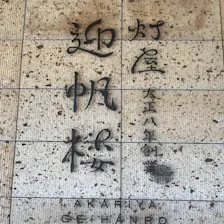 灯屋
大正八年創
迎帆楼
AKARIYA
GEIHANRO